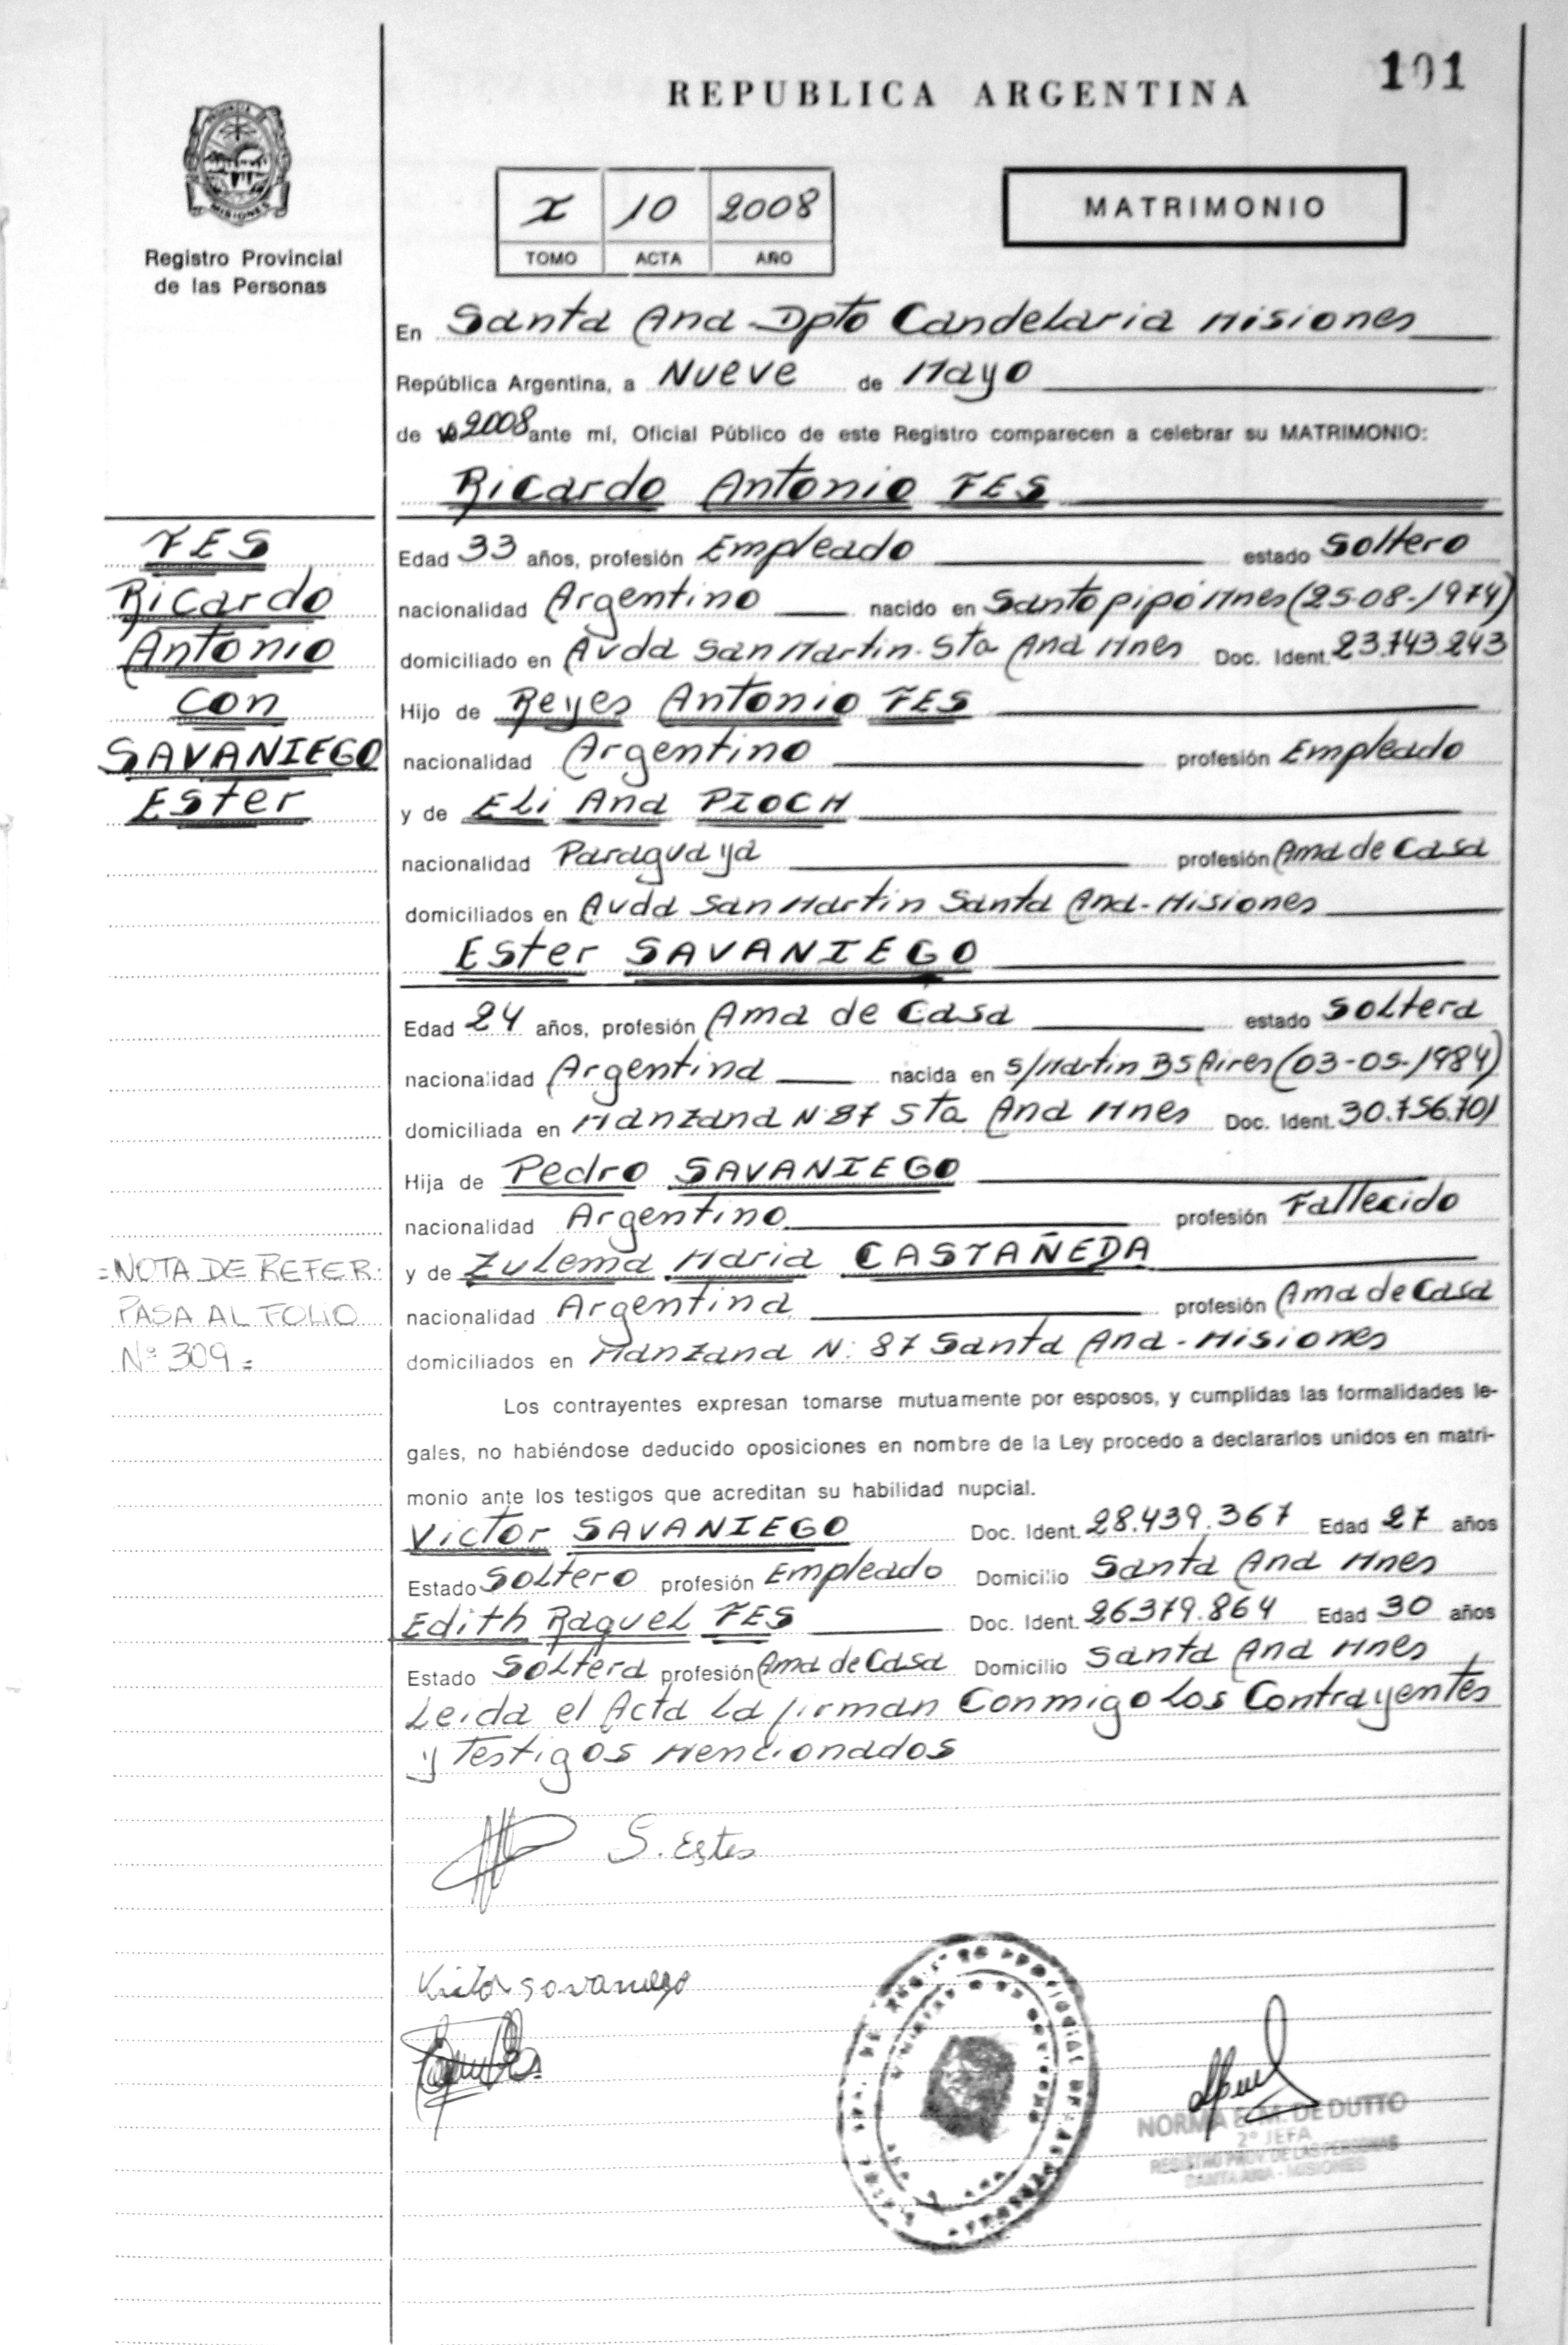 101
REPUBLICA ARGENTINA
MISIONES
Registro Provincial
de las Personas
I 10 2008
TOMO ACTA AÑO
MATRIMONIO
En Santa Ana - Dpto Candelaria Misiones
República Argentina, a Nueve de Mayo
de 2008 ante mí, Oficial Público de este Registro comparecen a celebrar su MATRIMONIO:
Ricardo Antonio FES
FES
Ricardo
Antonio
con
SAVANIEGO
Ester
Edad 33 años, profesión Empleado estado Soltero
nacionalidad Argentino nacido en Santo pipó Mnes (25-08-1974)
domiciliado en Avda San Martin - Sta Ana Mnes Doc. Ident. 23.743.243
Hijo de Reyes Antonio FES
nacionalidad Argentino profesión Empleado
y de Eli Ana PIOCH
nacionalidad Paraguaya profesión Ama de Casa
domiciliados en Avda San Martin Santa Ana - Misiones
Ester SAVANIEGO
Edad 24 años, profesión Ama de Casa estado Soltera
nacionalidad Argentina nacida en S/Martin BS Aires (03-05-1984)
domiciliada en Manzana N 87 Sta Ana Mnes Doc. Ident. 30.756.701
Hija de Pedro SAVANIEGO
nacionalidad Argentino profesión Fallecido
y de Zulema Maria CASTAÑEDA
nacionalidad Argentina profesión Ama de Casa
domiciliados en Manzana N: 87 Santa Ana - Misiones
= NOTA DE REFER.
PASA AL FOLIO
Nº 309 =
Los contrayentes expresan tomarse mutuamente por esposos, y cumplidas las formalidades le-
gales, no habiéndose deducido oposiciones en nombre de la Ley procedo a declararlos unidos en matri-
monio ante los testigos que acreditan su habilidad nupcial.
Victor SAVANIEGO Doc. Ident. 28.439.367 Edad 27 años
Estado Soltero profesión Empleado Domicilio Santa Ana Mnes
Edith Raquel FES Doc. Ident. 26379.864 Edad 30 años
Estado Soltera profesión Ama de Casa Domicilio Santa Ana Mnes
Leida el Acta la firman Conmigo los Contrayentes
y Testigos Mencionados
S. Ester
Victor Savaniego
NORMA E. M. DE DUTTO
2º JEFA
REGISTRO PROV. DE LAS PERSONAS
SANTA ANA - MISIONES